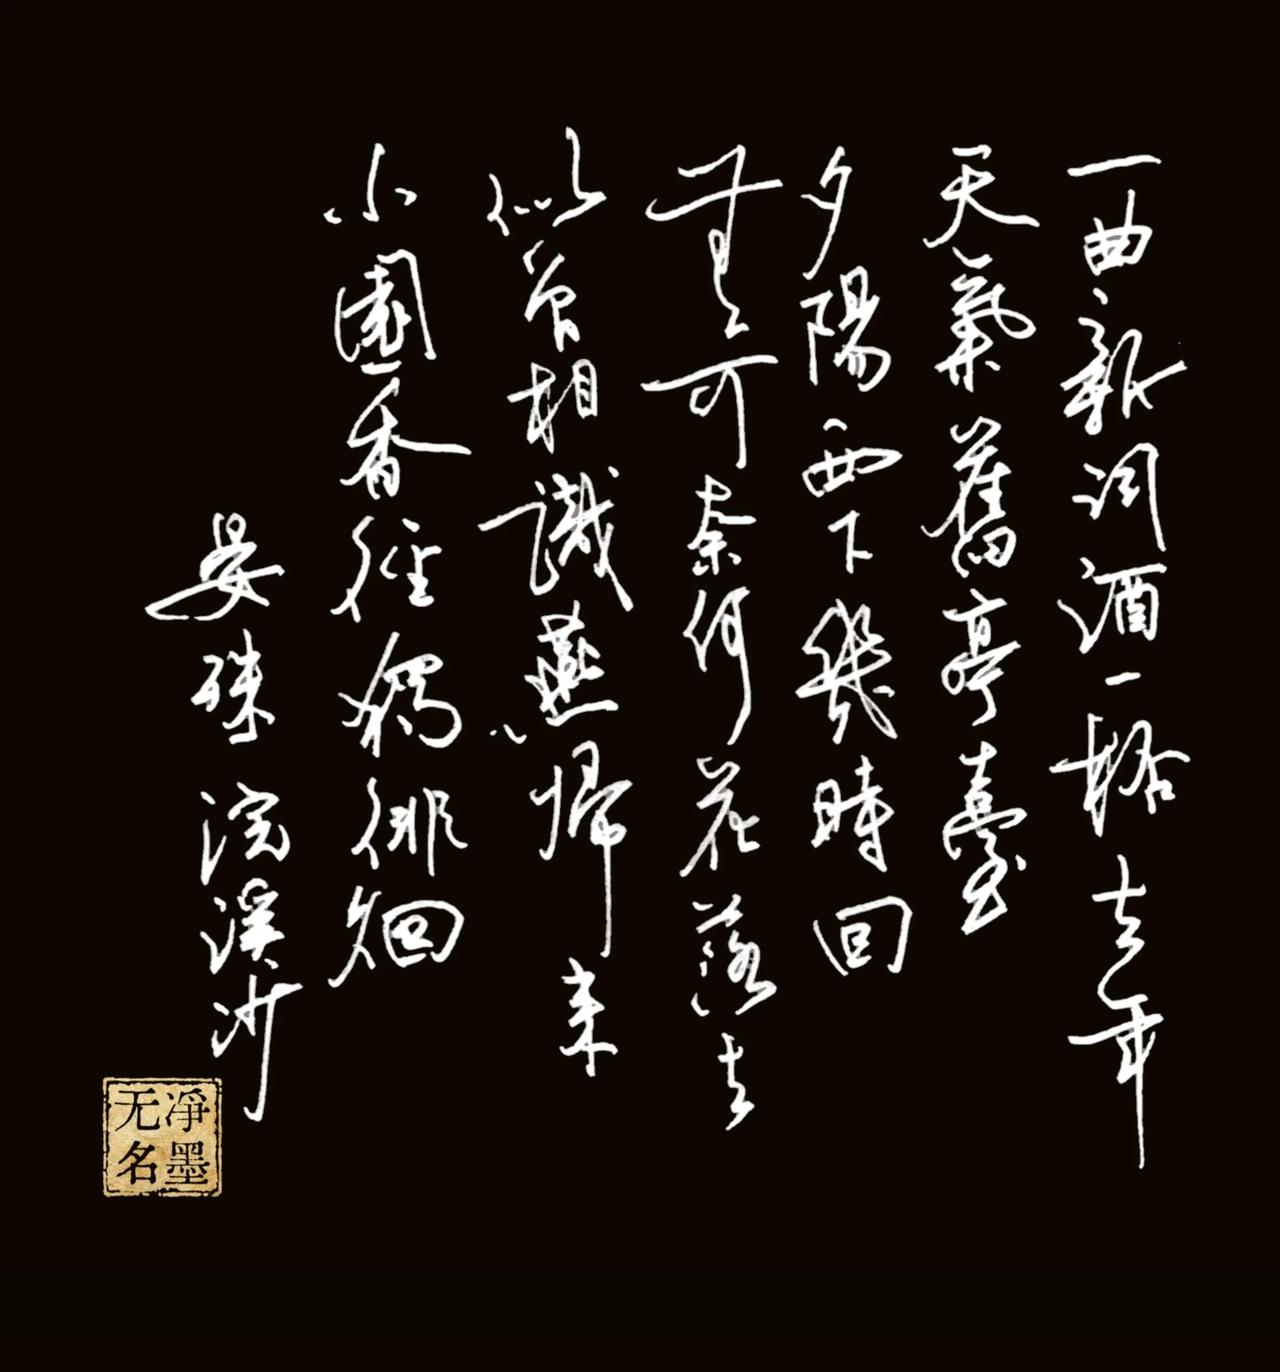 一曲新词酒一杯去年
天氣舊亭臺
夕陽西下幾時回
無可奈何花落去
似曾相識燕歸来
小園香徑獨徘徊
晏殊 浣溪沙
净墨
无名